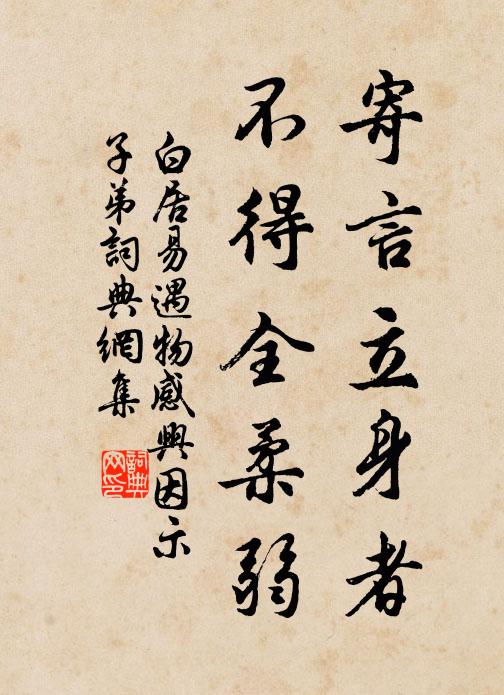 寄言立身者
不得全柔弱
白居易遇物感興因示
子弟詞典網集
詞典
网印